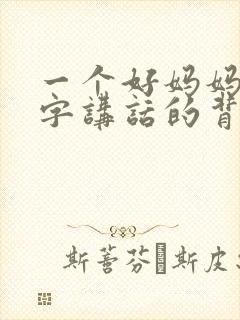 一个好妈妈
字講話的背
斯蒼芬 斯皮